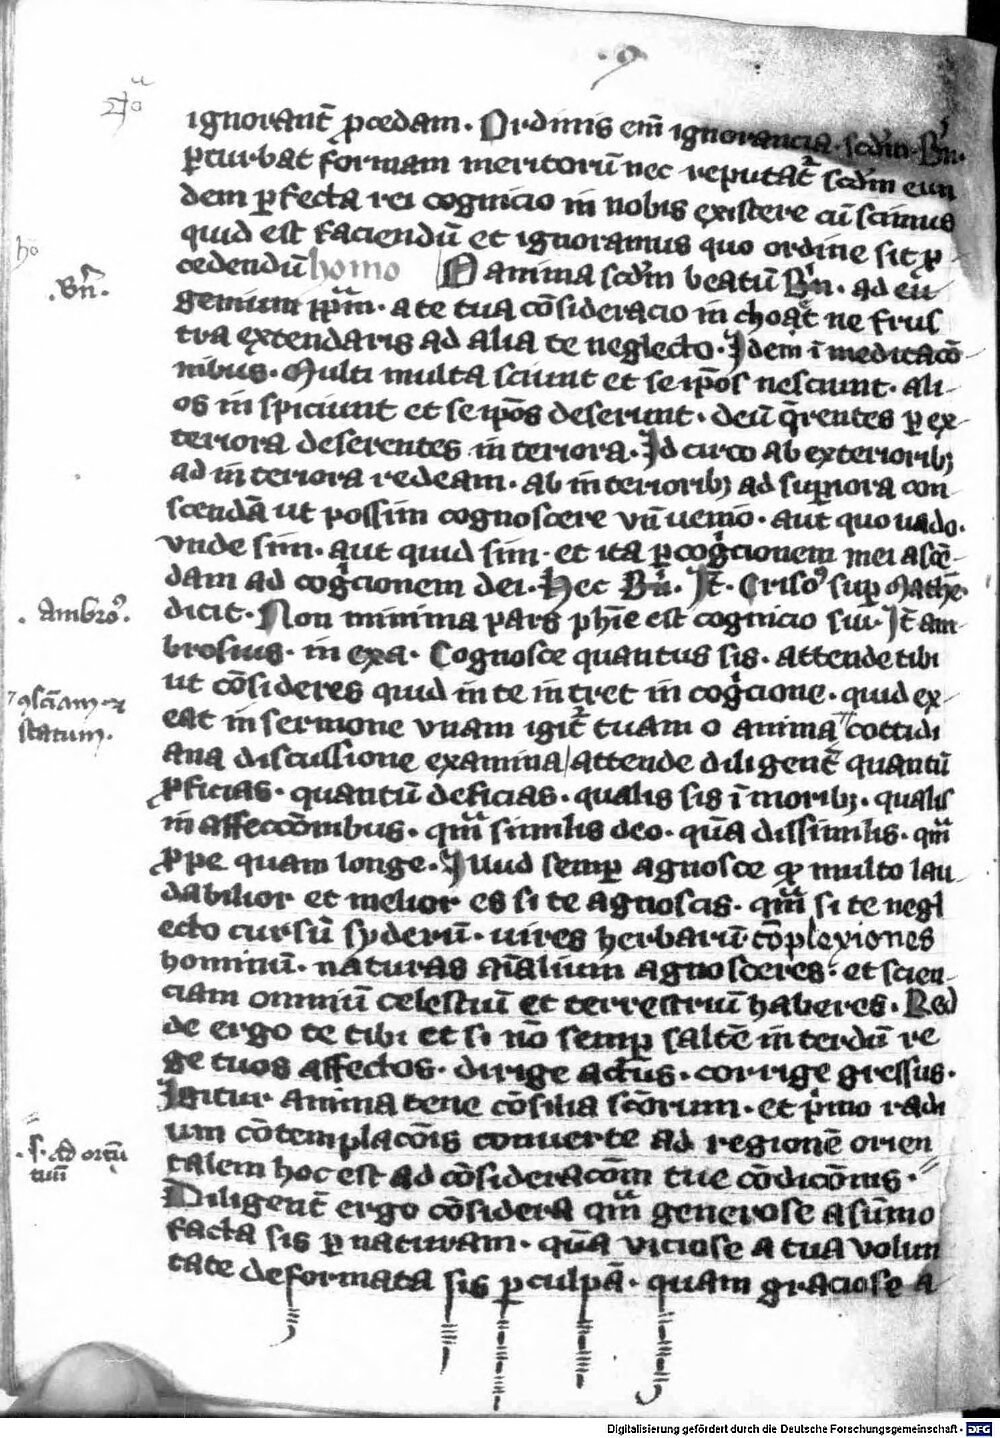 ignorant̄ p̄cedam. Ordinis em̄ ignorancia scd̄m Bn̄.
ꝑturbat formam meritorū nec reputat᷑ scd̄m eun
dem ꝑfecta rei cognicio in nobis existere cū scimus
quid est faciendū et ignoramus quo ordine sit ꝓ
cedendū homo O anima scd̄m beatū Bn̄. ad eu
genium pp̄m. a te tua cōsideracio inchoat᷑ ne frus
tra extendaris ad alia te neglecto. Idem ī meditacō
nibus. Multi multa sciunt et se ip̄os nesciunt. ali
os inspiciunt et se ip̄os deserunt. deū q̄rentes ꝑ ex
teriora deserentes interiora. Idcirco ab exterioribꝫ
ad interiora redeam. ab interioribꝫ ad suꝑiora con
scendā ut possim cognoscere vn̄ uenio. aut quo uado.
vnde sim. aut quid sim. et ita ꝑ cogᷓcionem mei ascē
dam ad cogᷓcionem dei. Hec Bn̄. It̄. Crisoꝰ suꝑ Mathe.
dicit. Non minima pars phīe est cognicio sui. It̄ am
brosius. in exa. Cognosce quantus sis. attende tibi
ut cōsideres quid in te intret in cogᷓcione. quid ex
eat in sermone vnam igit᷑ tuam o anima cottidi
ana discussione examina / attende diligent̄ quantū
ꝓficias. quantū deficias. qualis sis ī moribꝫ. qualis
in affeccōnibus. qm̄ similis deo. qūa dissimilis. qm̄
ꝓpe quam longe. Illud semꝑ agnosce ꝙ multo lau
dabilior et melior es si te agnoscis. qm̄ si te negl
ecto cursū syderū. uires herbarū. cōplexiones
hominū. naturas aīalium agnosceres. et scien
ciam omniū celestiū et terrestriū haberes. Red
de ergo te tibi et si nō semꝑ saltē interdū re
ge tuos affectos. dirige actus. corrige gressus.
Igitur anima tene cōsilia scōrum. et p̄mo radi
um cōtemplacōis conuerte ad regionē orien
talem hoc est ad cōsideracōm tue cōdicōnis.
Diligent̄ ergo cōsidera qm̄ generose a sūmo
facta sis ꝑ naturam. qūa viciose a tua volun
tate deformata sis ꝑ culpā. quam graciose a
hō
.Bn̄.
. Ambroꝰ.
ꝯsciam et
statum.
. s. ad ortū
tuū